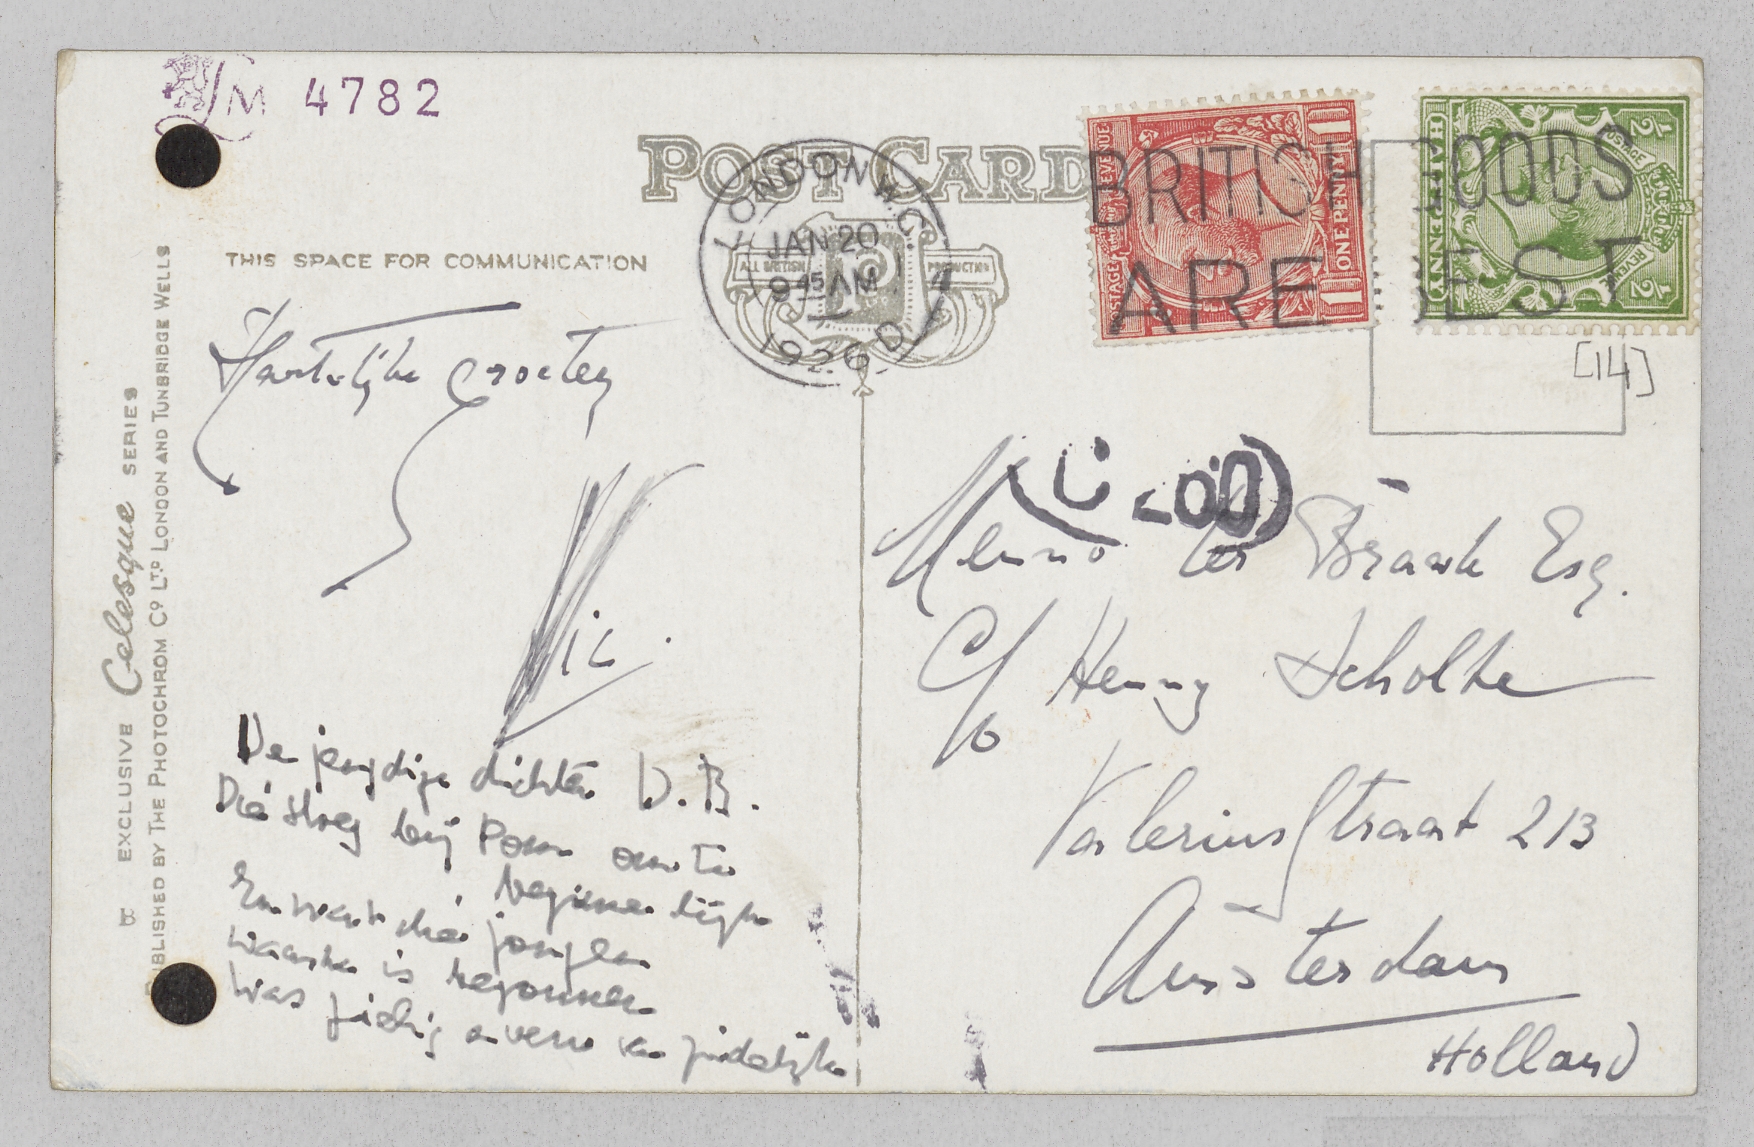 LM 4782
POST CARD
LONDON W.C.
JAN 20
9 45 AM
1926
D
ALL BRITISH
PRODUCTION
BRITISH GOODS
ARE BEST
POSTAGE
REVENUE
ONE PENNY
1
1
HALFPENNY
POSTAGE
REVENUE
1/2
1/2
[14]
THIS SPACE FOR COMMUNICATION
EXCLUSIVE Celesque SERIES
PUBLISHED BY THE PHOTOCHROM Co. LTD. LONDON AND TUNBRIDGE WELLS
Hartelijke Groeten
Vic.
De jeugdige dichter D.B.
Die sloeg bij
En want die
waarke is begonnen
Was
Menno ter Braak Esq.
C/o Henny Scholte
Valeriusstraat 213
Amsterdam
Holland